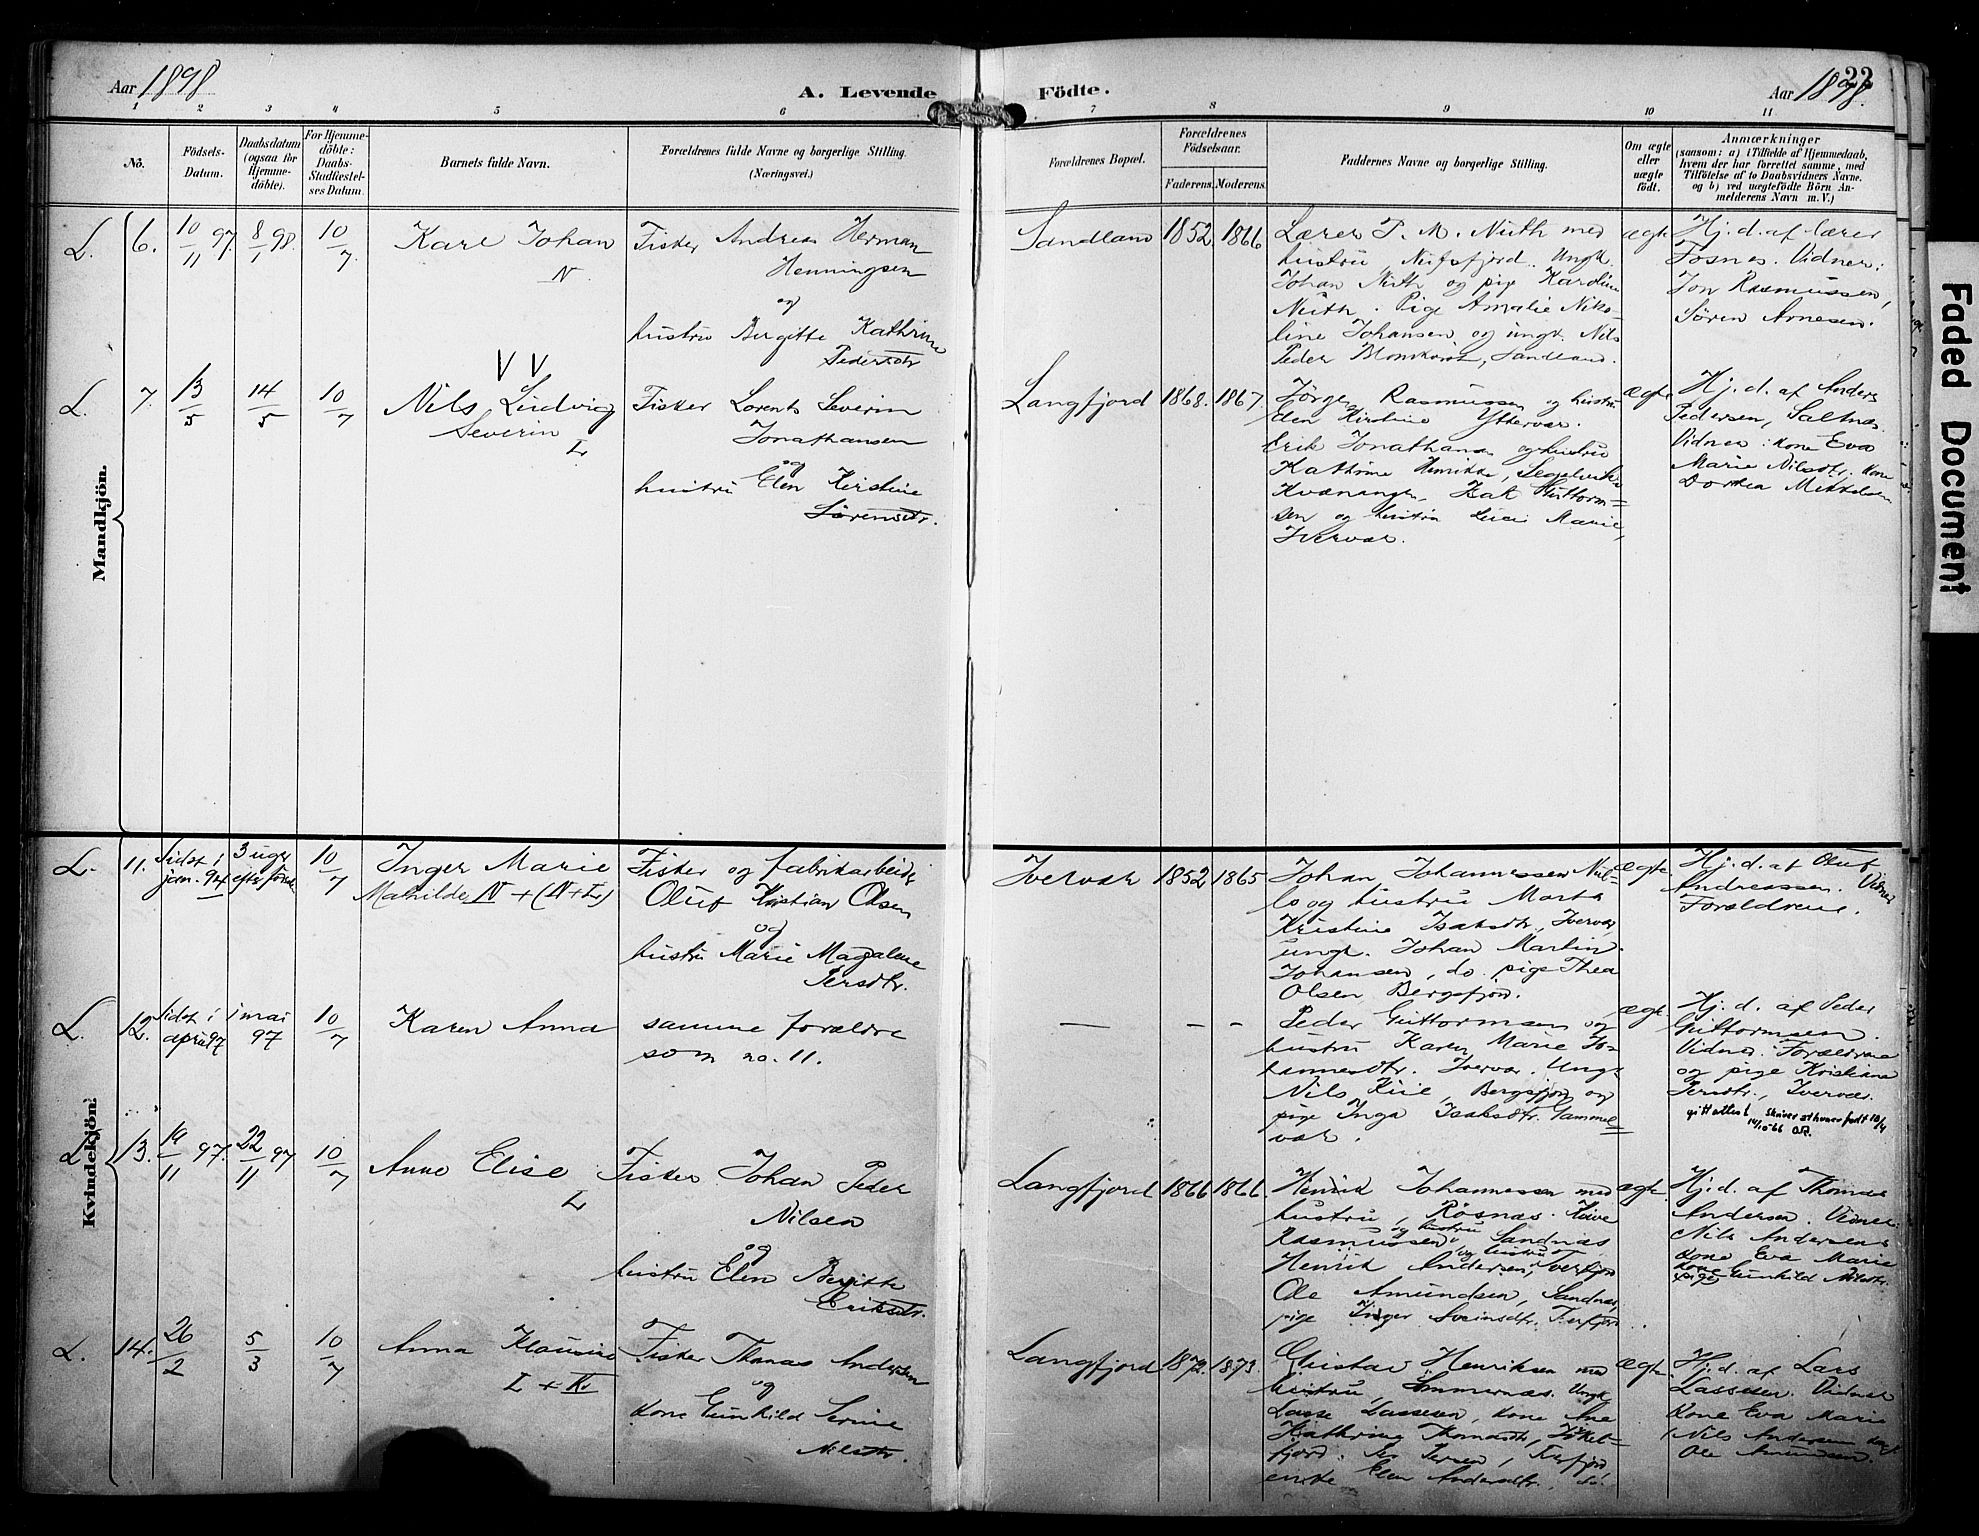 Aar 1898
A. Levende Födte.
Aar 1898.
22
1 2 3 4 5 6 7 8 9 10 11
No.
Födsels-
Datum.
Daabsdatum
(ogsaa for
Hjemme-
döbte).
For Hjemme-
döbte:
Daabs-
Stadfæstel-
ses Datum.
Barnets fulde Navn.
Forældrenes fulde Navne og borgerlige Stilling.
(Næringsvei.)
Forældrenes Bopæl.
Forældrenes
Födselsaar.
Faderens. Moderens.
Faddernes Navne og borgerlige Stilling.
Om ægte
eller
uægte
födt.
Anmærkninger
(saasom: a) i Tilfælde af Hjemmedaab,
hvem der har forrettet samme, med
Tilföielse af to Daabsvidners Navne.
og b) ved uægtefödte Börn An-
melderens Navn m. V.)
Mandkjön.
L. 6. 10/11 97. 8/1 98. 10/7.
Karl Johan
N
Fisker Andreas Herman
Henningsen
og
hustru Bergitte Kathrine
Pedersdtr
Sandland 1852 1866
Lærer P. M. Nuth med
hustru, Nufsfjord. Ungk.
Johan Nuth og pige Karoline
Nuth. Pige Amalie Niko-
line Johansen og ungk. Nils
Peder, Sandland.
ægte
Hj. d. af lærer
Fosnes. Vidner:
Jon Rasmussen,
Sören Arnesen.
L. 7. 13/5 14/5 10/7
Nils Ludvig
Severin
L
Fisker Lorents Severin
Jonathansen
og
hustru Elen Kirstine
Sörensdtr.
Langfjord 1868. 1867.
Jörgen Rasmussen og hustru
Kirstine Yttervær.
Erik Jonathans og hustru
Kathrine Henrikke,
Kvænangen, Isak Guttorm-
sen og hustru Marie,
Iververr.
ægte
Hj. d. af Anders
Pedersen, Saltnes.
Vidner: kone Eva
Marie Nilsdtr. kone
Dorthea Mikkelsen
Kvindekjön.
L. 11. Sidst i
jan. 94
3 uger
efter föds.
10/7
Inger Marie
Mathilde N + (N+L)
Fisker og fabrikarbeider
Oluf Kristian Olsen
og
hustru Marie Magdalene
Persdtr.
Ivervær 1852 1865
Johan Johannessen
og hustru Marta
Kristine Isaksdtr., Ivervær,
ungk. Johan Martin
Johansen, do. pige Thea
Olsen Bergsfjord.
ægte
Hj. d. af Oluf
Andreassen. Vidner
Forældrene.
L. 12. Sidst i
april 97
i mai
97
10/7
Karen Anna
samme forældre
som no. 11.
— – –
Peder Guttormsen og
hustru Karen Marie Jo-
hannesdtr. Ivervær. Ungk
Nils Kiil, Bergsfjord og
pige Inga Isaksdtr. Gammel-
vær.
ægte
Hj. d. af Peder
Guttormsen.
Vidner. Forældrene
og pige Kristiane
Persdtr., Ivervær.
gitt attest skriver at hun er født 10/4
14/10-66 OR.
L. 13. 19/11 97. 22/11 97 10/7
Anne Elise
L
Fisker Johan Peder
Nilsen
og
hustru Elen Bergitte
Eriksdtr.
Langfjord 1866 1866.
Henrik Johannessen med
hustru, Rösnæs.
Rasmussen og hustru, Sandnæs
Henrik Andersen og hustru,
Ole Amundsen, Sandnæs,
pige Inger Sveinsdtr.
ægte
Hj. d. af Thomas
Andersen. Vidner:
Nils Andersens
kone Eva Marie
kone Gunhild Nilsdtr.
L. 14. 26/2 5/3 10/7
Anna Klausine
L + Kv
Fisker Thomas Andersen
og
kone Gunhild Serine
Nilsdtr.
Langfjord 1872. 1873.
Gustav Henriksen med
hustru,. Ungk
Lasse Lassesen, kone Ane
Kathrine Thomasdtr, Jökel-
fjord. Per Persen,
enke Elen Andersdtr., do.
ægte
Hj. d. af Lars
Lassesen. Vidner
Kone Eva Marie
(Nils Andersen
Ole Amundsen.
Faded Document